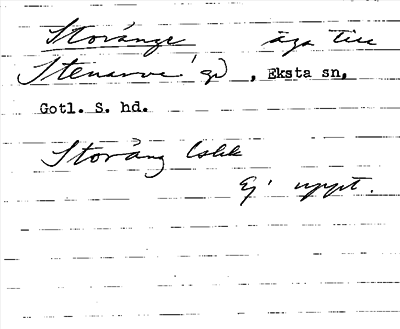 Storänge äga till
Stenarve gd, Eksta sn,
Gotl. S. hd.
Storäng Lskk
Ej uppt.